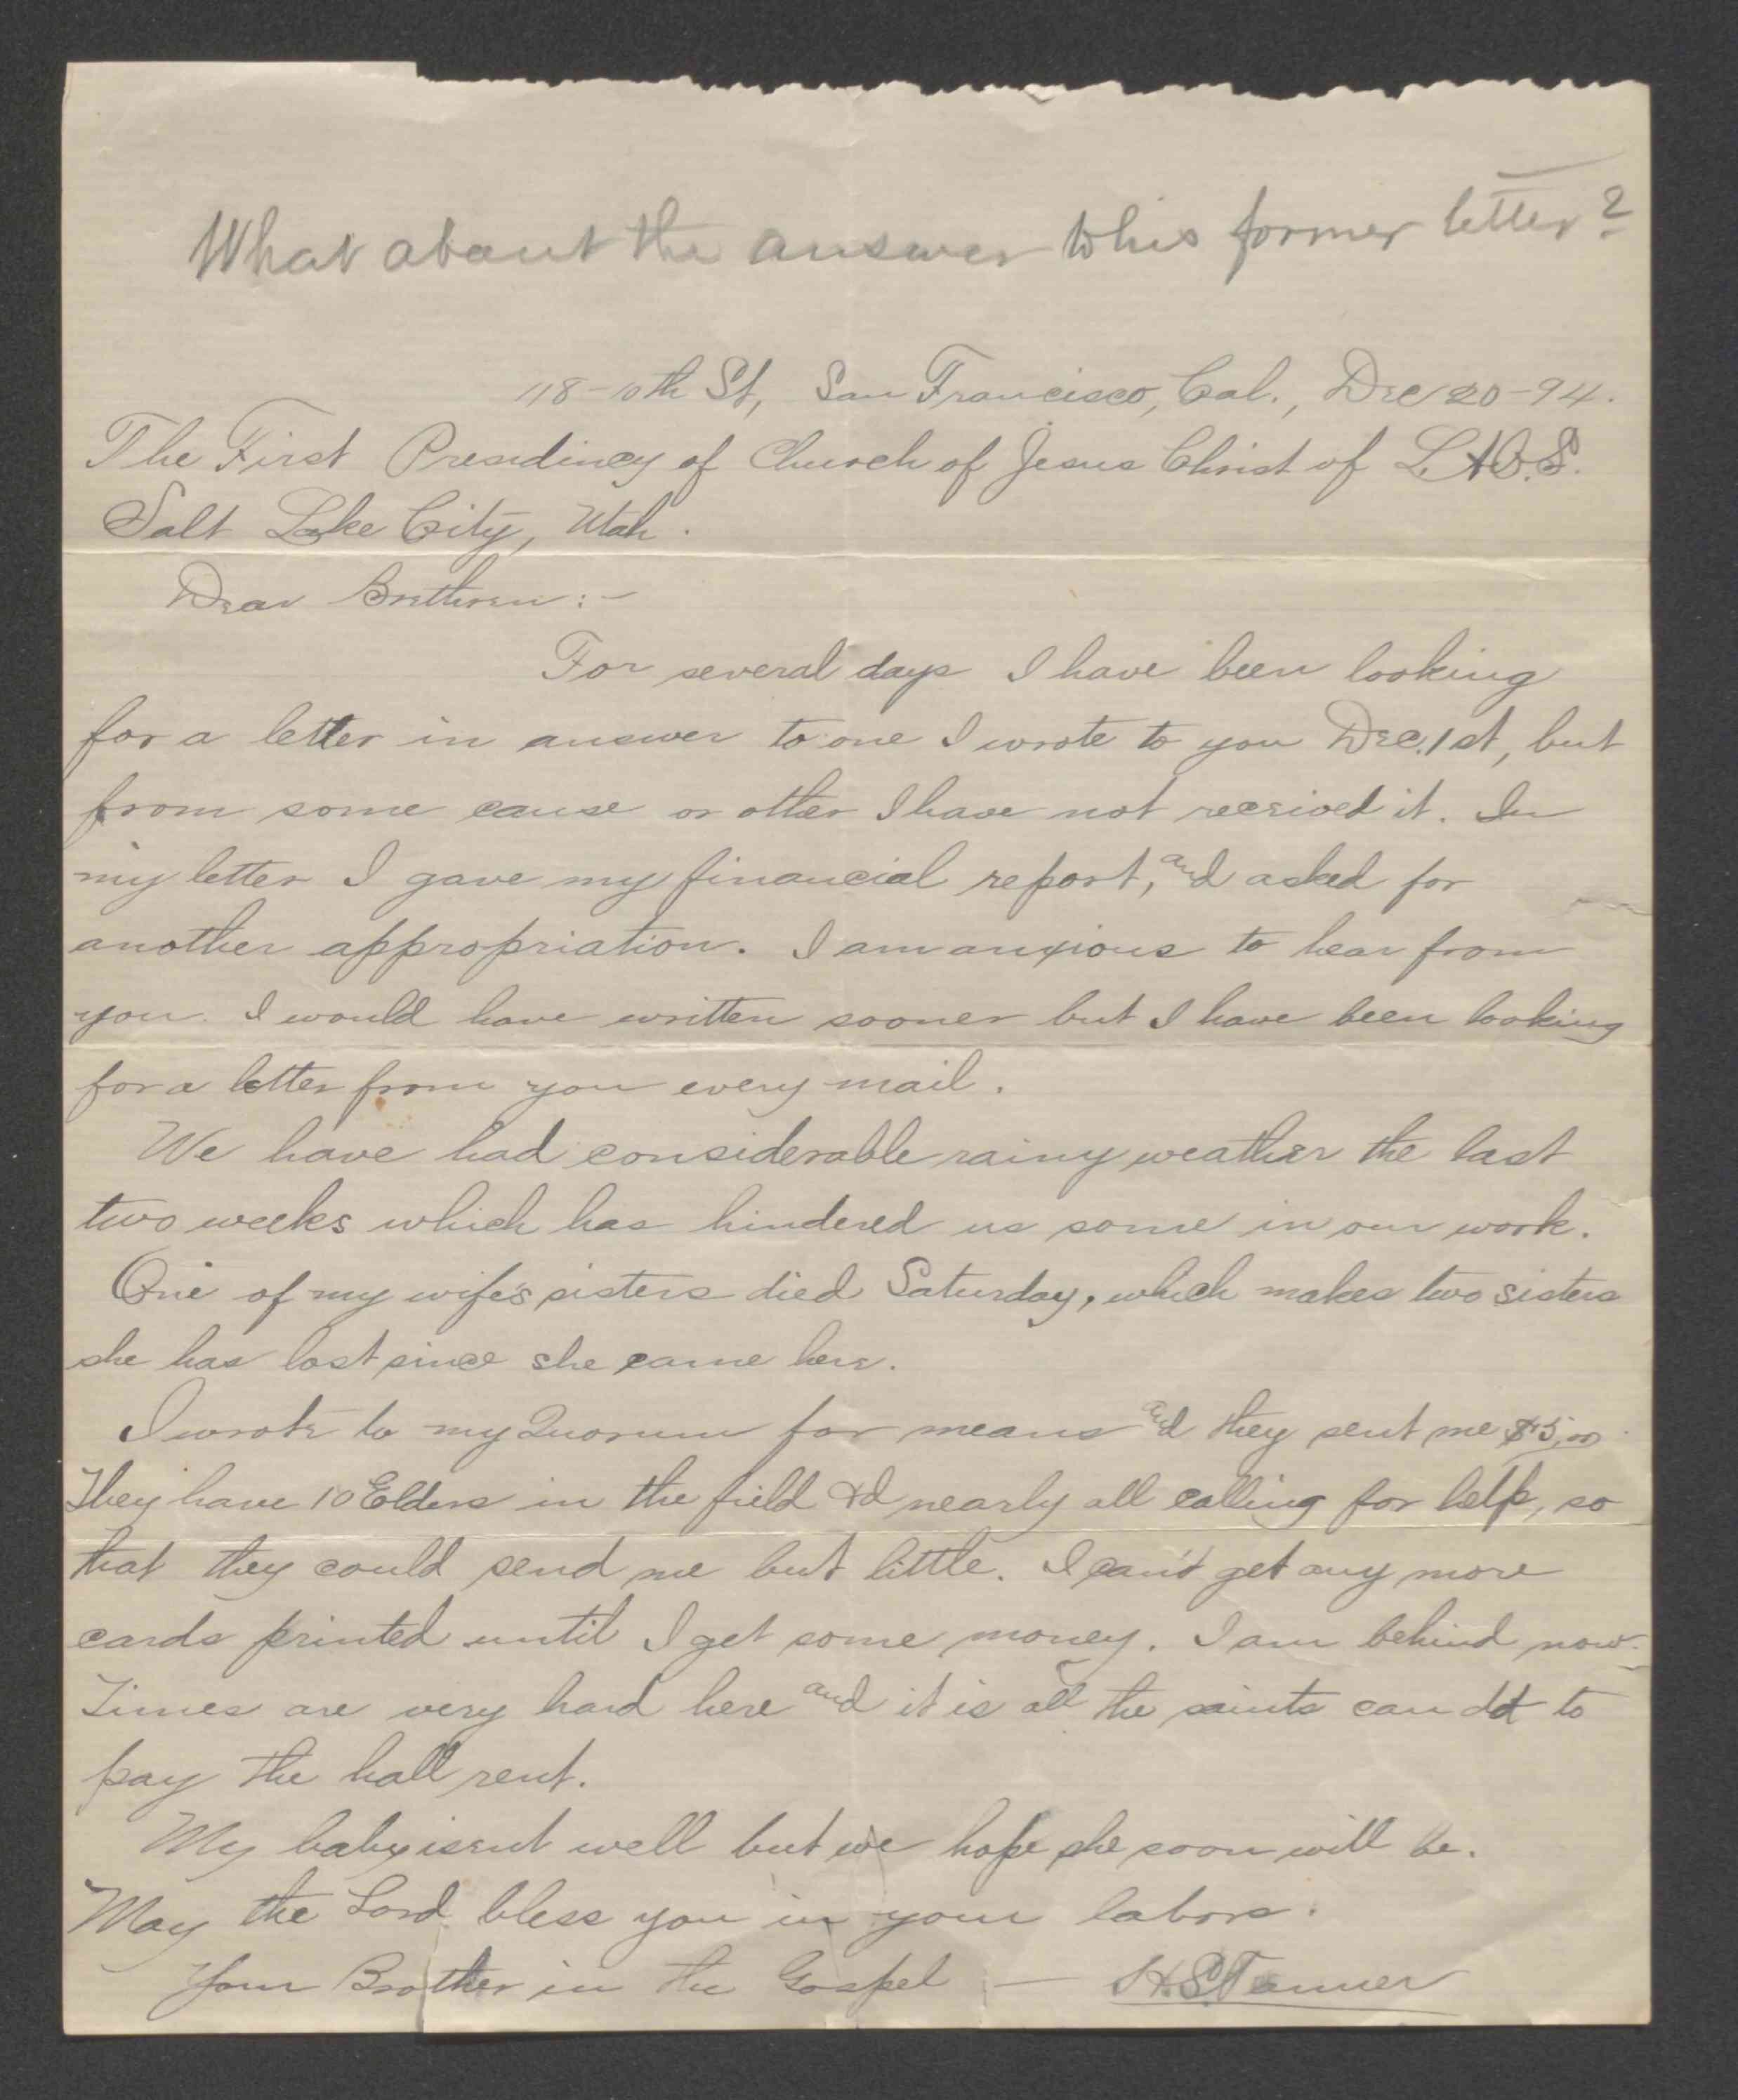 What about the answer to his former letter?
118-10th St, San Francisco, Cal., Dec 20-94.
The First Presidency of Church of Jesus Christ of L.D.S.
Salt Lake City, Utah.
Dear Brethren:-
For several days I have been looking
for a letter in answer to one I wrote to you Dec. 1st, but
from some cause or other I have not received it. In
my letter I gave my financial report, and asked for
another appropriation. I am anxious to hear from
you. I would have written sooner but I have been looking
for a letter from you every mail.
We have had considerable rainy weather the last
two weeks which has hindered us some in our work.
One of my wife's sisters died Saturday, which makes two sisters
she has lost since she came here.
I wrote to my Quorum for means and they sent me $5.00
They have 10 Elders in the field &d nearly all calling for help, so
that they could send me but little. I can't get any more
cards printed until I get some money. I am behind now.
Times are very hard here and it is all the saints can do to
pay the hall rent.
My baby isent well but we hope she soon will be.
May the Lord bless you in your labors.
Your Brother in the Gospel — H.S. Tanner